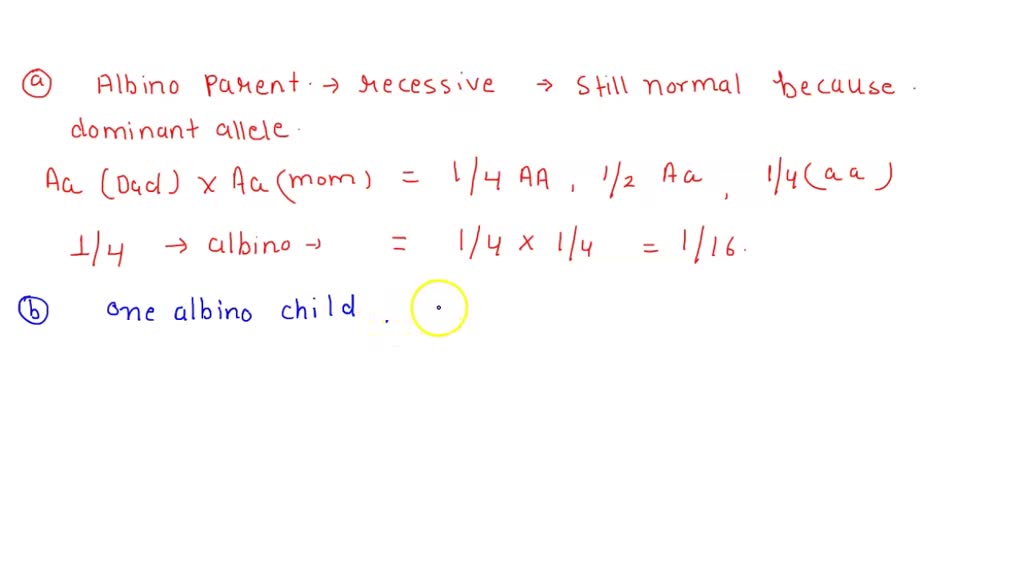 (a) Albino Parent. → recessive → Still normal because.
dominant allele.
Aa (Dad) x Aa (mom) = 1/4 AA, 1/2 Aa, 1/4 (aa)
1/4 → albino → = 1/4 x 1/4 = 1/16.
(b) one albino child.